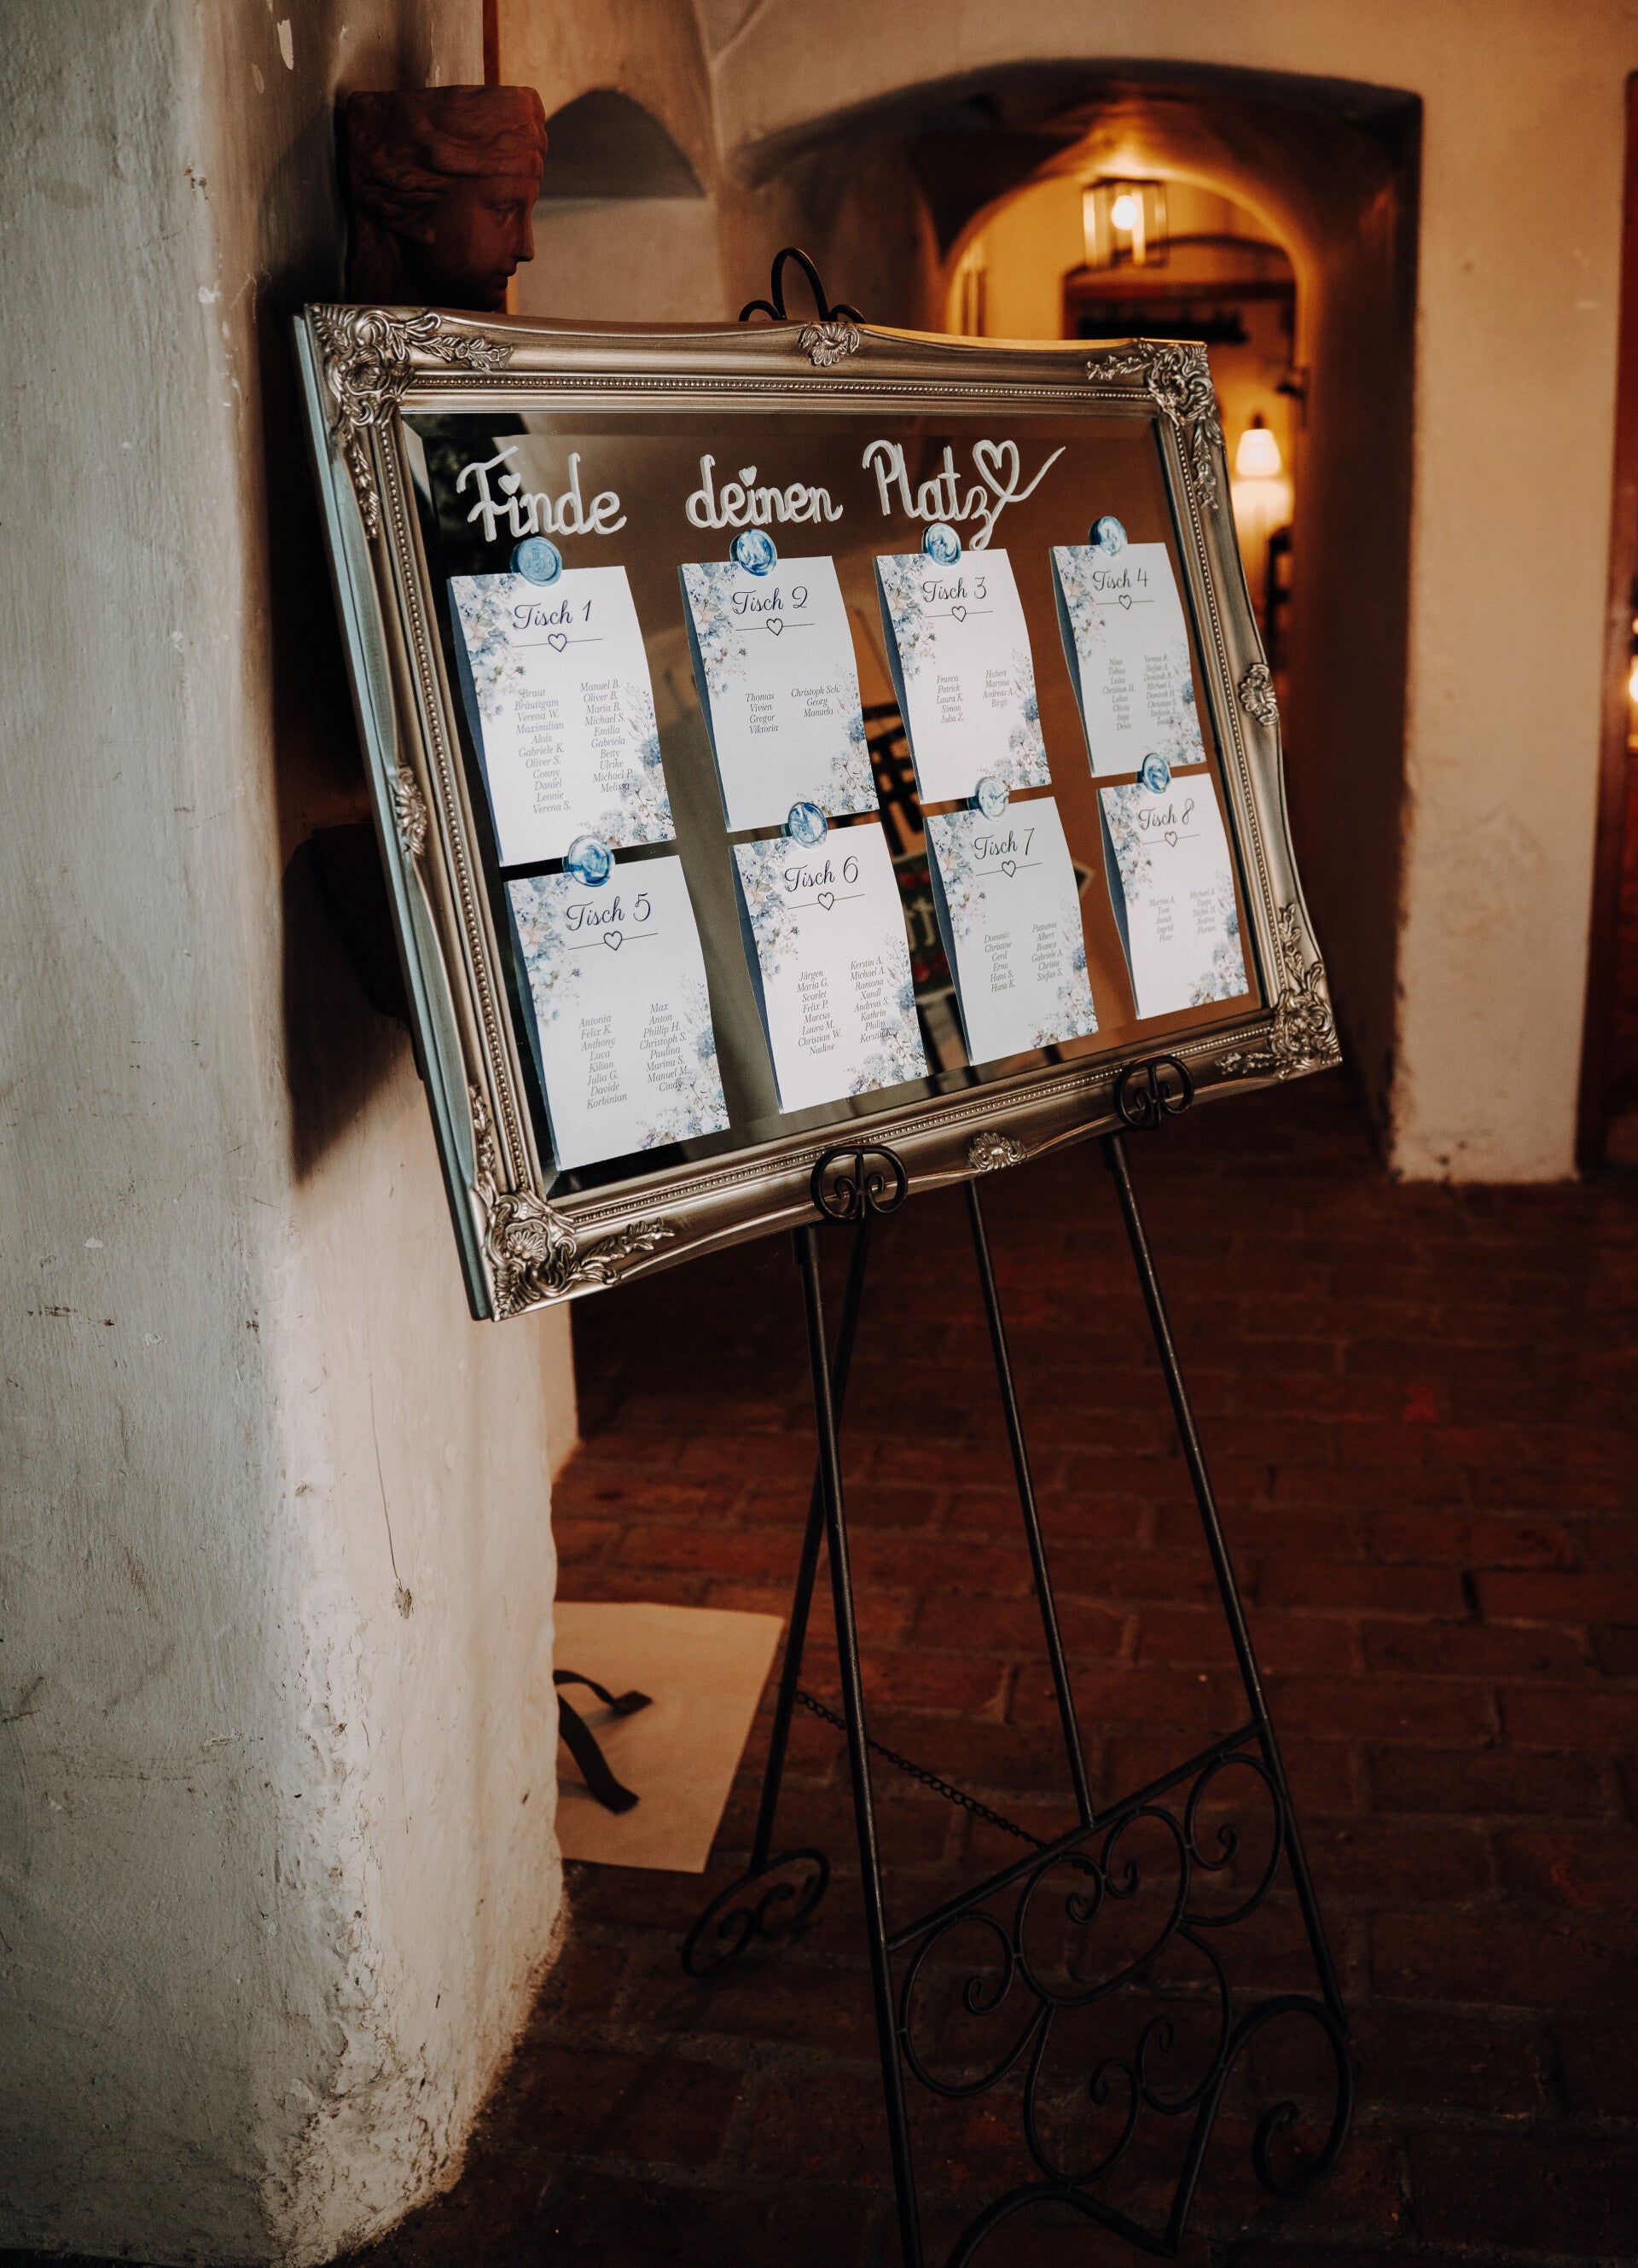 Finde deinen Platz
Tisch 1
Braut
Bräutigam
Verena W.
Maximilian
Alois
Gabriele K.
Oliver S.
Conny
Daniel
Leonie
Verena S.
Manuel B.
Oliver B.
Maria B.
Michael S.
Emilia
Gabriela
Betty
Ulrike
Michael P.
Melissa
Tisch 2
Thomas
Vivien
Gregor
Viktoria
Christoph Sch.
Georg
Manuela
Tisch 3
Franca
Patrick
Laura K.
Simon
Julia Z.
Hubert
Martina
Andreas A.
Birgit
Tisch 4
Nina
Tobias
Luisa
Christian H.
Lukas
Olivia
Anja
Denis
Verena R.
Stefan A.
Dominik R.
Michael L.
Dominik H.
Christian S.
Stefanie S.
Tisch 5
Antonia
Felix K.
Anthony
Luca
Kilian
Julia G.
Davide
Korbinian
Max
Anton
Phillip H.
Christoph S.
Paulina
Marina S.
Manuel M.
Cindy
Tisch 6
Jürgen
Maria G.
Scarlet
Felix P.
Marcus
Laura M.
Christian W.
Nadine
Kerstin A.
Michael A.
Ramona
Xandl
Andreas S.
Kathrin
Philip
Kerstin K.
Tisch 7
Dominic
Christine
Gerd
Erna
Hans S.
Hans K.
Pattama
Albert
Bianca
Gabriele A.
Christa
Stefan S.
Tisch 8
Marina A.
Toni
Jonah
Ingrid
Peter
Michael A.
Tanja
Stefan H.
Andrea
Florian